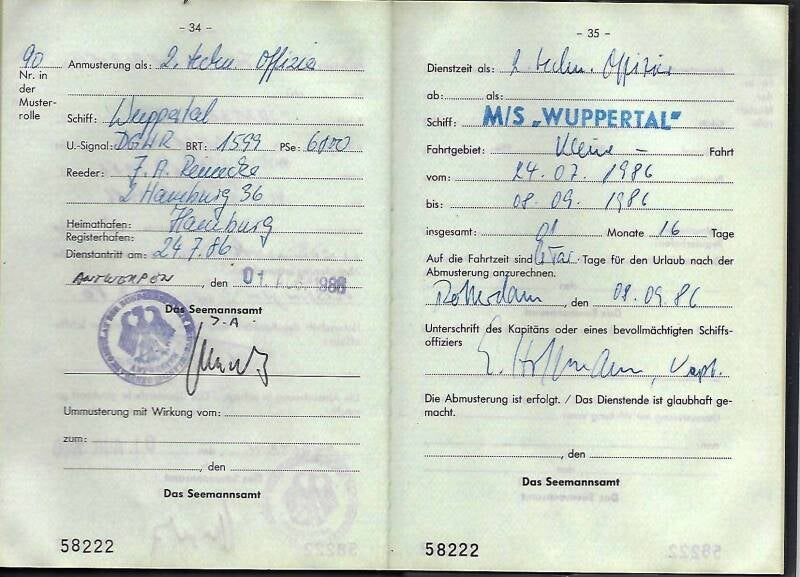 - 34 -
90
Nr. in
der
Muster-
rolle
Anmusterung als: 2. techn. Offizier
Schiff: Wuppertal
U.-Signal: DGHR BRT: 1599 PSe: 6000
Reeder: F. A. Reinecke
2 Hamburg 36
Heimathafen: Hamburg
Registerhafen:
Dienstantritt am: 24.7.86
ANTWERPEN, den 01
Das Seemannsamt
I. A.
Ummusterung mit Wirkung vom:
zum:
, den
Das Seemannsamt
58222
- 35 -
Dienstzeit als: 2 techn. Offizier
ab: als:
Schiff: M/S „WUPPERTAL"
Fahrtgebiet: Kleine - Fahrt
vom: 24. 07. 1986
bis: 08. 09. 1986
insgesamt: 01 Monate 16 Tage
Auf die Fahrtzeit sind Tage für den Urlaub nach der
Abmusterung anzurechnen.
Rotterdam, den 08.09.86
Unterschrift des Kapitäns oder eines bevollmächtigten Schiffs-
offiziers
E. Hoffmann, Kapt.
Die Abmusterung ist erfolgt. / Das Dienstende ist glaubhaft ge-
macht.
, den
Das Seemannsamt
58222